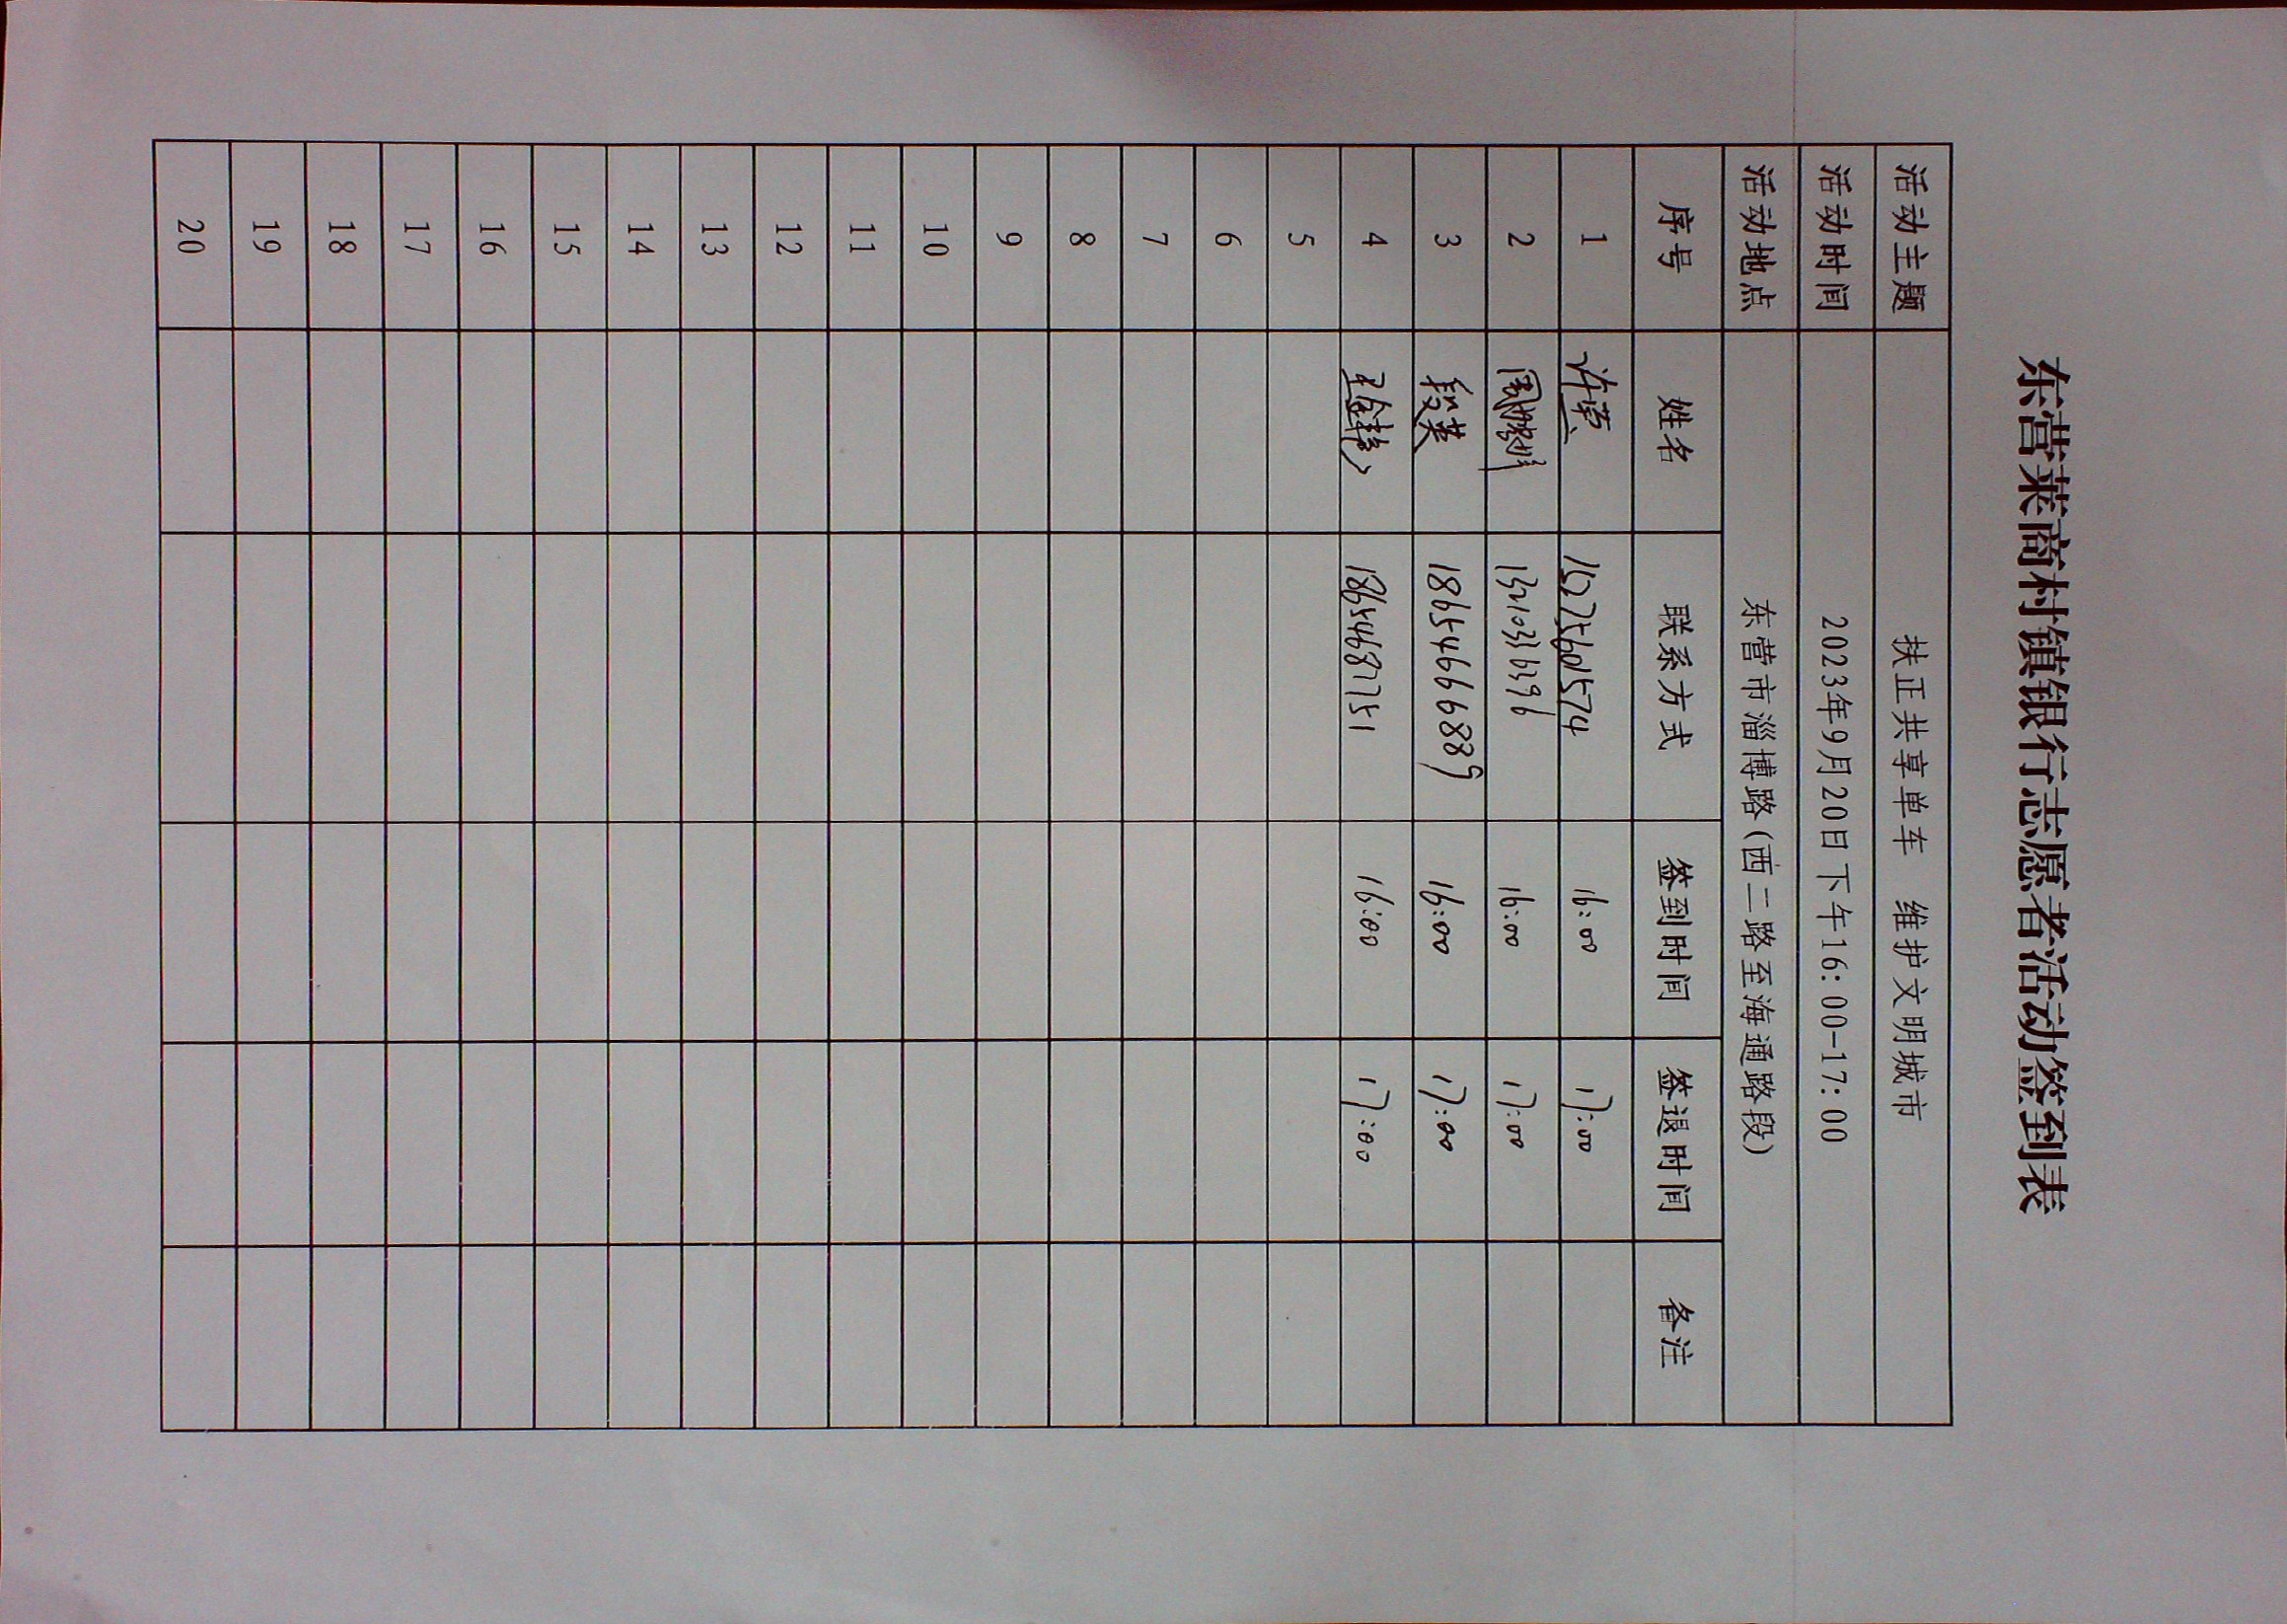 东营莱商村镇银行志愿者活动签到表
活动主题 扶正共享单车 维护文明城市
活动时间 2023年9月20日下午16:00-17:00
活动地点 东营市淄博路(西二路至海通路段)
序号 姓名 联系方式 签到时间 签退时间 备注
1 许 15275601574 16:00 17:00
2 周鹏 13210336396 16:00 17:00
3 段英 18654666889 16:00 17:00
4 王 18654687751 16:00 17:00
5
6
7
8
9
10
11
12
13
14
15
16
17
18
19
20